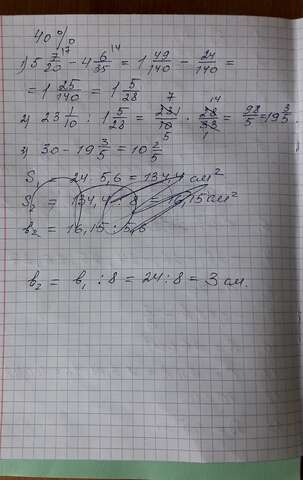 40%
1) 5 7/20 - 4 6/35 = 1 49/140 - 24/140 =
= 1 25/140 = 1 5/28
2) 23 1/10 : 1 5/28 = 231/10 · 28/33 = 98/5 = 19 3/5
3) 30 - 19 3/5 = 10 2/5
S₁ = 24 · 5,6 = 134,4 см²
S₂ = 134,4 : 8 = 16,15 см²
в₂ = 16,15 : 5,6
в₂ = в₁ : 8 = 24 : 8 = 3 см.